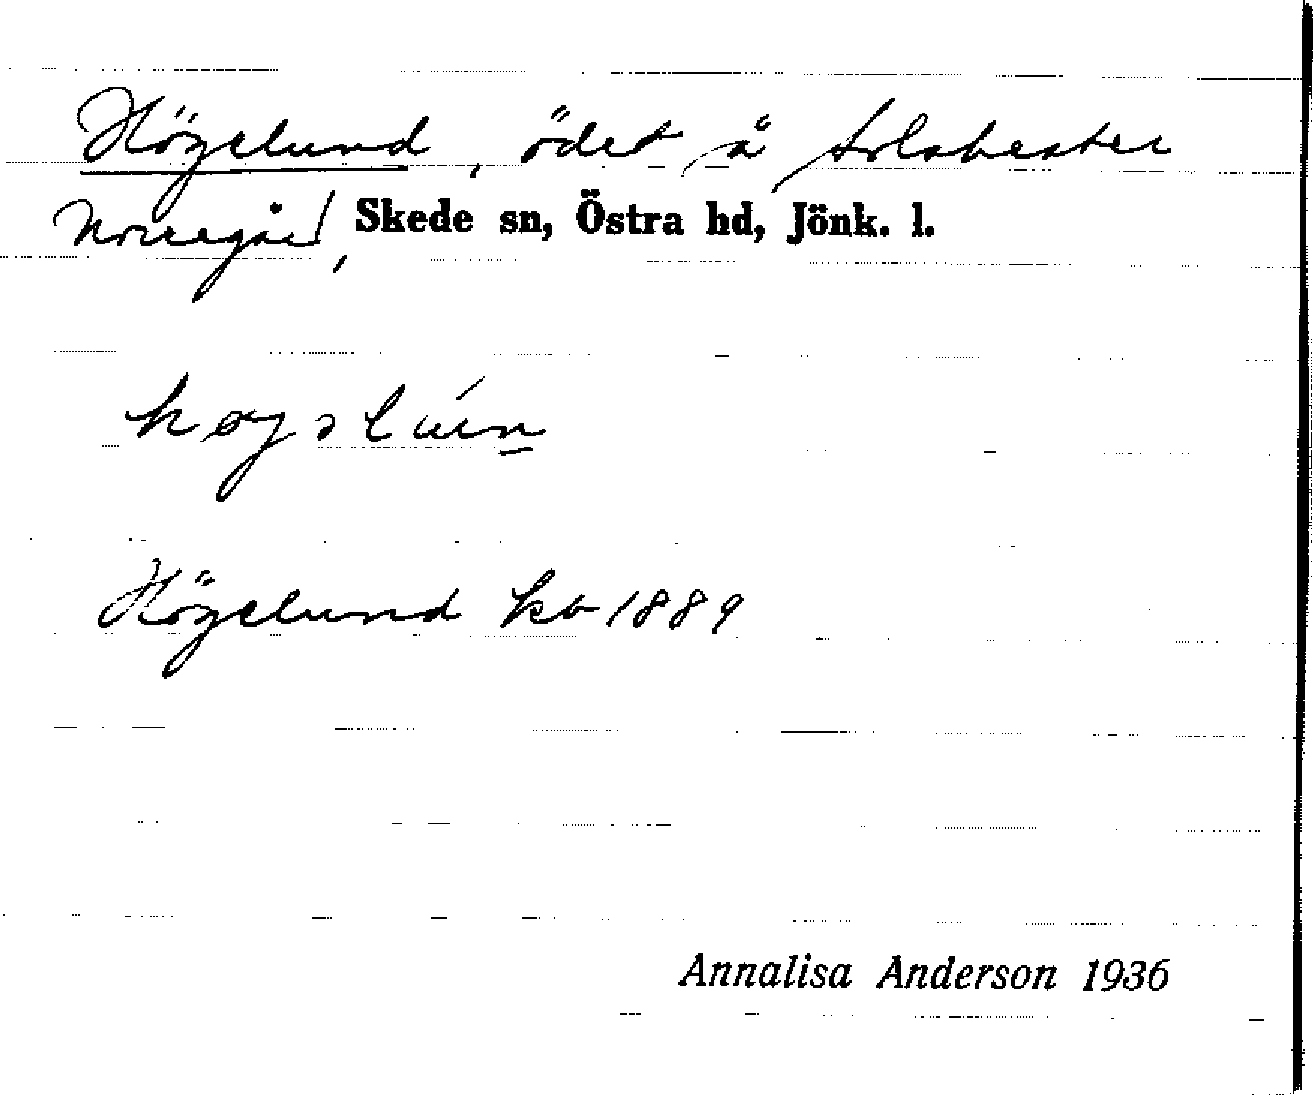 Högelund, ödet å Solaberäter
Norregård, Skede sn, Östra hd, Jönk. l.
Högelund kb 1889
Annalisa Anderson 1936